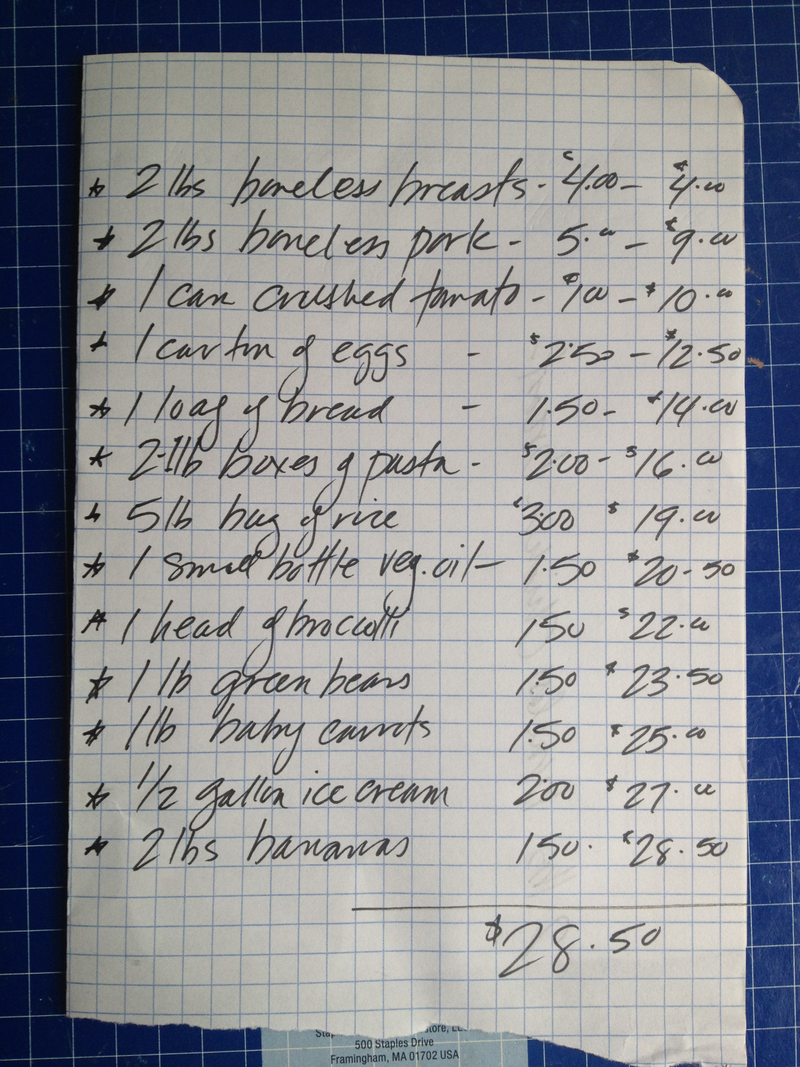 * 2 lbs boneless breasts - $4.00 - $4.00
* 2 lbs boneless pork - 5.00 - $9.00
* 1 can crushed tomato - $1 00 - $10.00
* 1 carton of eggs - $2.50 - $12.50
* 1 loaf of bread - 1.50 - $14.00
* 2-1lb boxes of pasta - $2.00 - $16.00
* 5lb bag of rice $3.00 $19.00
* 1 small bottle veg. oil - 1.50 $20.50
* 1 head of broccolli 150 $22.00
* 1 lb green beans 1.50 $23.50
* 1lb baby carrots 1.50 $25.00
* 1/2 gallon ice cream 200 $27.00
* 2 lbs bananas 150. $28.50
$28.50
500 Staples Drive
Framingham, MA 01702 USA